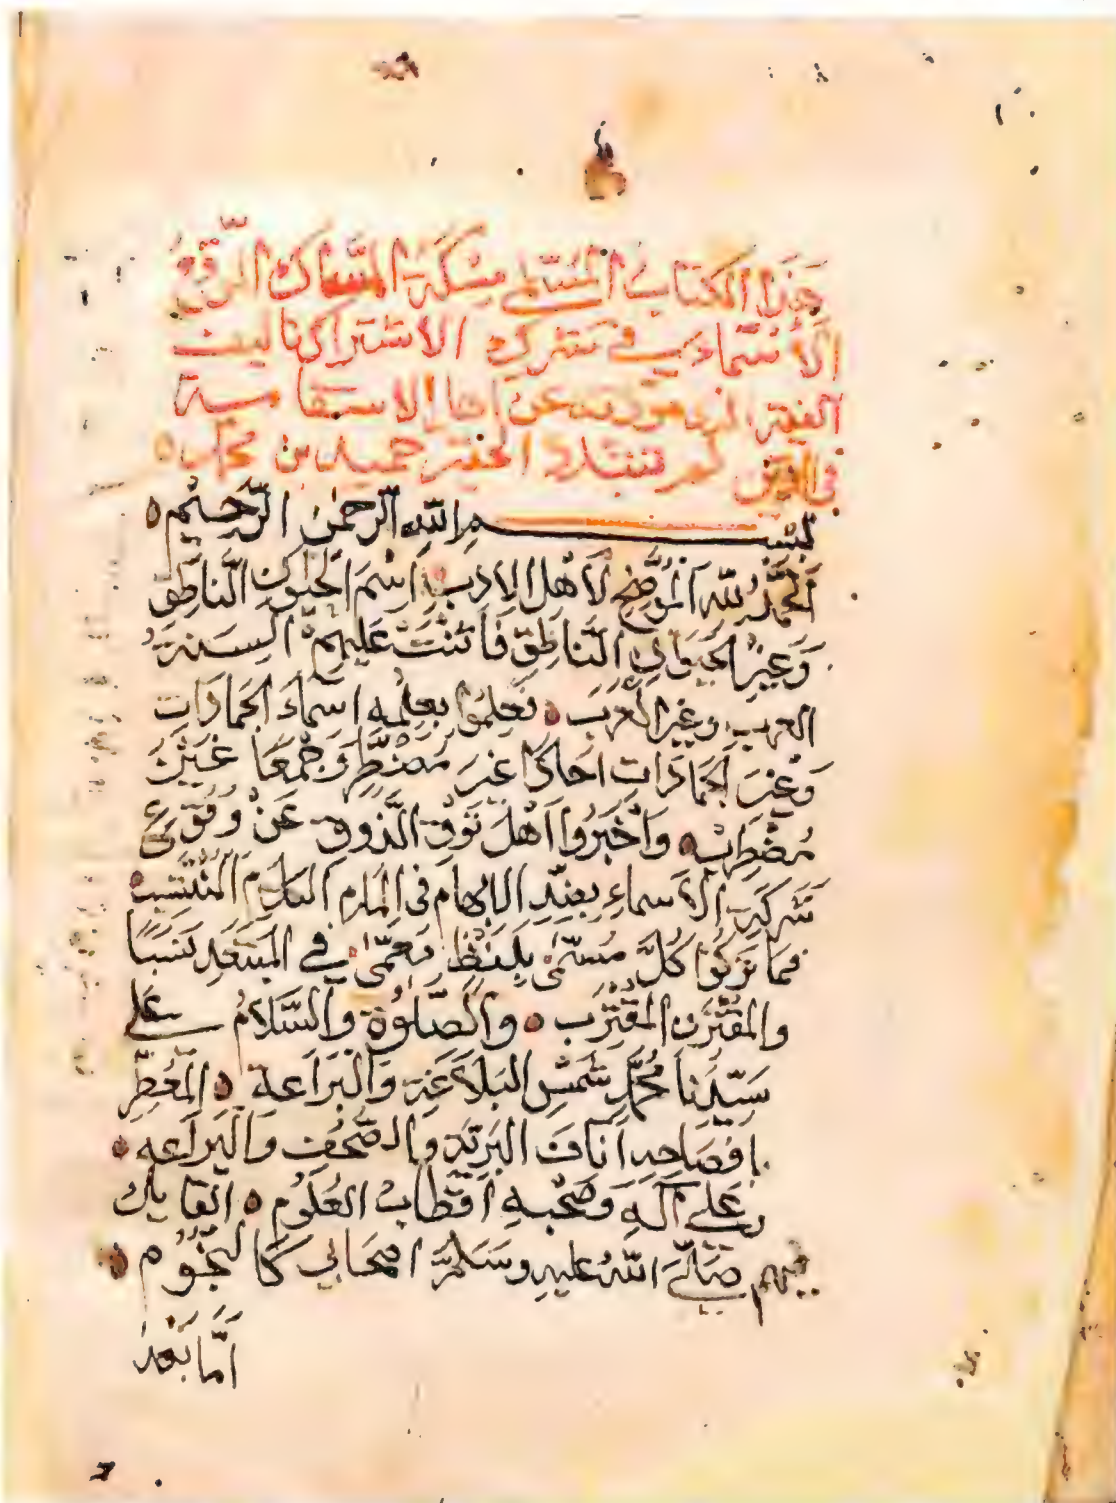 هذا الكتاب المسمى بسكة المسماك الرقع
الأسماء في مشرك الاشتراك تاليف
الفقير عن الاستقامة
في الدين الحقير حميد بن محمد
بسم الله الرحمن الرحيم
الحمد لله الموضح لأهل الأدب اسم الحيوان الناطق
وغير الحيوان الناطق فأثنت عليهم السنة
العرب وغير العرب فعلموا بعلمه اسماء الجمادات
وغير الجمادات احادا غير مضطر وجمعا غير
مضطرب وأخبروا أهل توق الذوق عن وقوع
شركة الأسماء في
فما تركوا كل مسمى بلفظ معمى في المبتعد نسبا
والمقترن المقترب والصلوة والسلام على
سيدنا محمد شمس البلاغة والبراعة المعطر
بافصاحه اناف البرية والصحف واليراعه
وعلى آله وصحبه أقطاب العلوم القايل
فيهم صلى الله عليه وسلم اصحابي كالنجوم
أما بعد